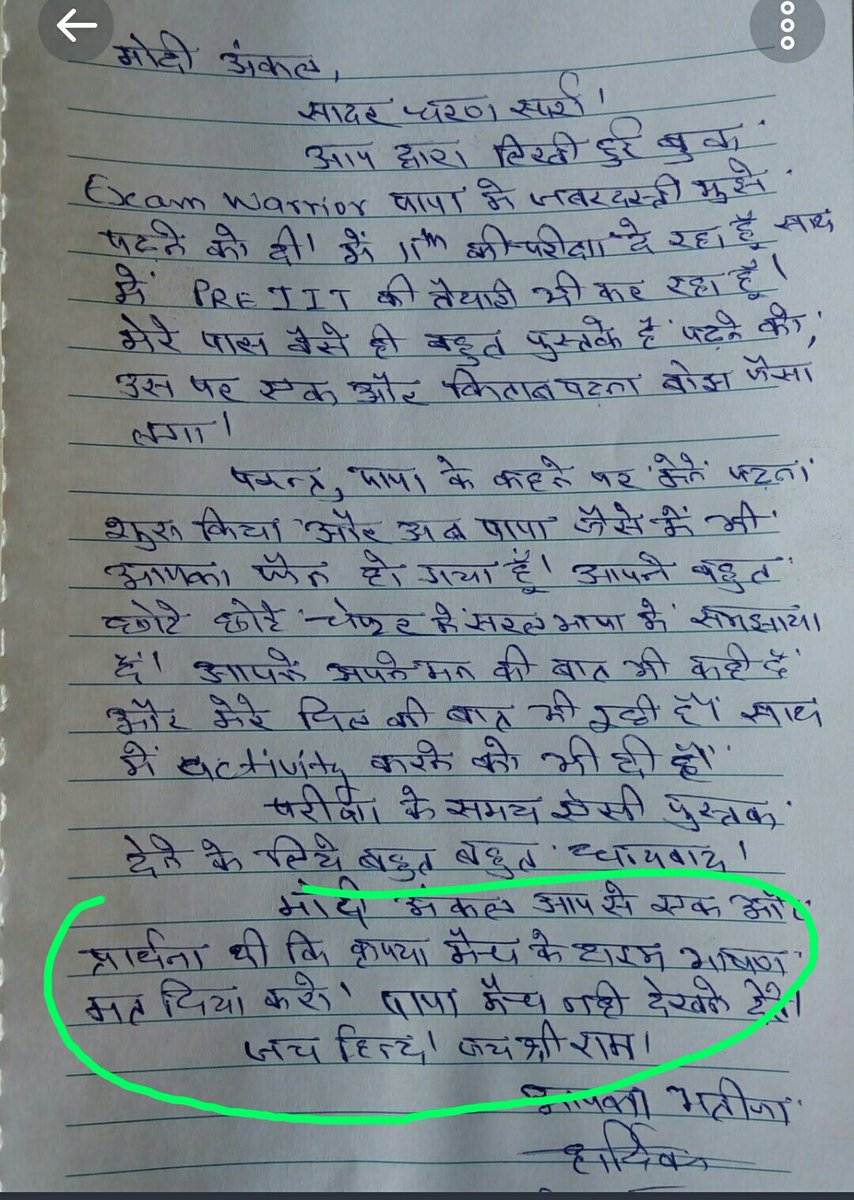 मोदी अंकल,
सादर चरण स्पर्श।
आप द्वारा लिखी हुई बुक
Exam Warrior पापा ने जबरदस्ती मुझे
पढ़ने को दी। में 11th की परीक्षा दे रहा हूँ साथ
में PRE IIT की तैयारी भी कर रहा हूँ।
मेरे पास वैसे ही बहुत पुस्तके है पढ़ने को,
उस पर एक और किताब पढ़ना बोझ जैसा
लगा।
परन्तु, पापा के कहने पर मेने पढ़ना
शुरू किया और अब पापा जैसे में भी
आपका फैन हो गया हूँ। आपने बहुत
छोटे छोटे चेप्टर में सरल भाषा में समझाया
हैं। आपने अपने मन की बात भी कही हैं
और मेरे दिल की बात भी रही है। साथ
में activity करने को भी दी है।
परीक्षा के समय ऐसी पुस्तक
देने के लिये बहुत बहुत धन्यवाद।
मोदी अंकल आप से एक और
प्रार्थना थी कि कृपया मैच के टाइम भाषण
मत दिया करो। पापा मैच नही देखने देते।
जय हिन्द। जय श्री राम।
आपका भतीजा
हार्दिक